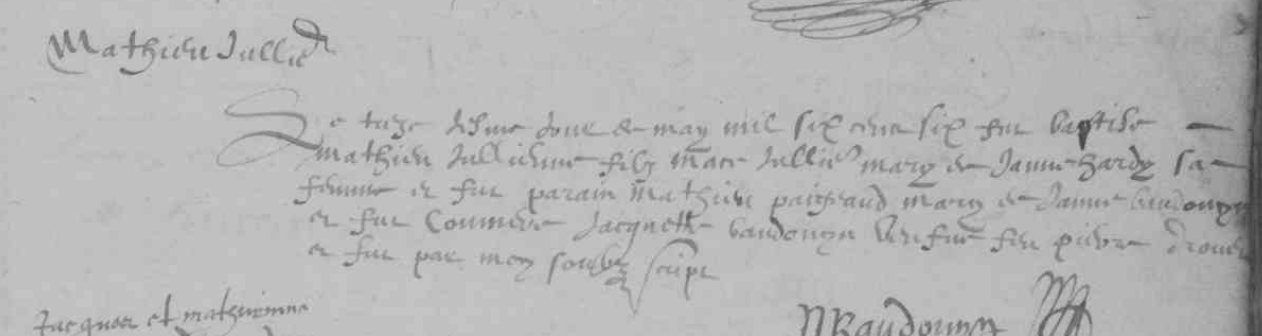 Mathieu Jullien
Le treze iesme jour de may mil six cens six fut baptise
mathieu Jullienne filz mace Jullien mary de Janne hardy sa
femme et fut parain mathieu paigeaud mary de Janne baudouyn
et fut Commere Jacquette baudouyn veufue feu pierre drouet
et fut par moy soubz script
Jacques et mathurinne
Baudouyn